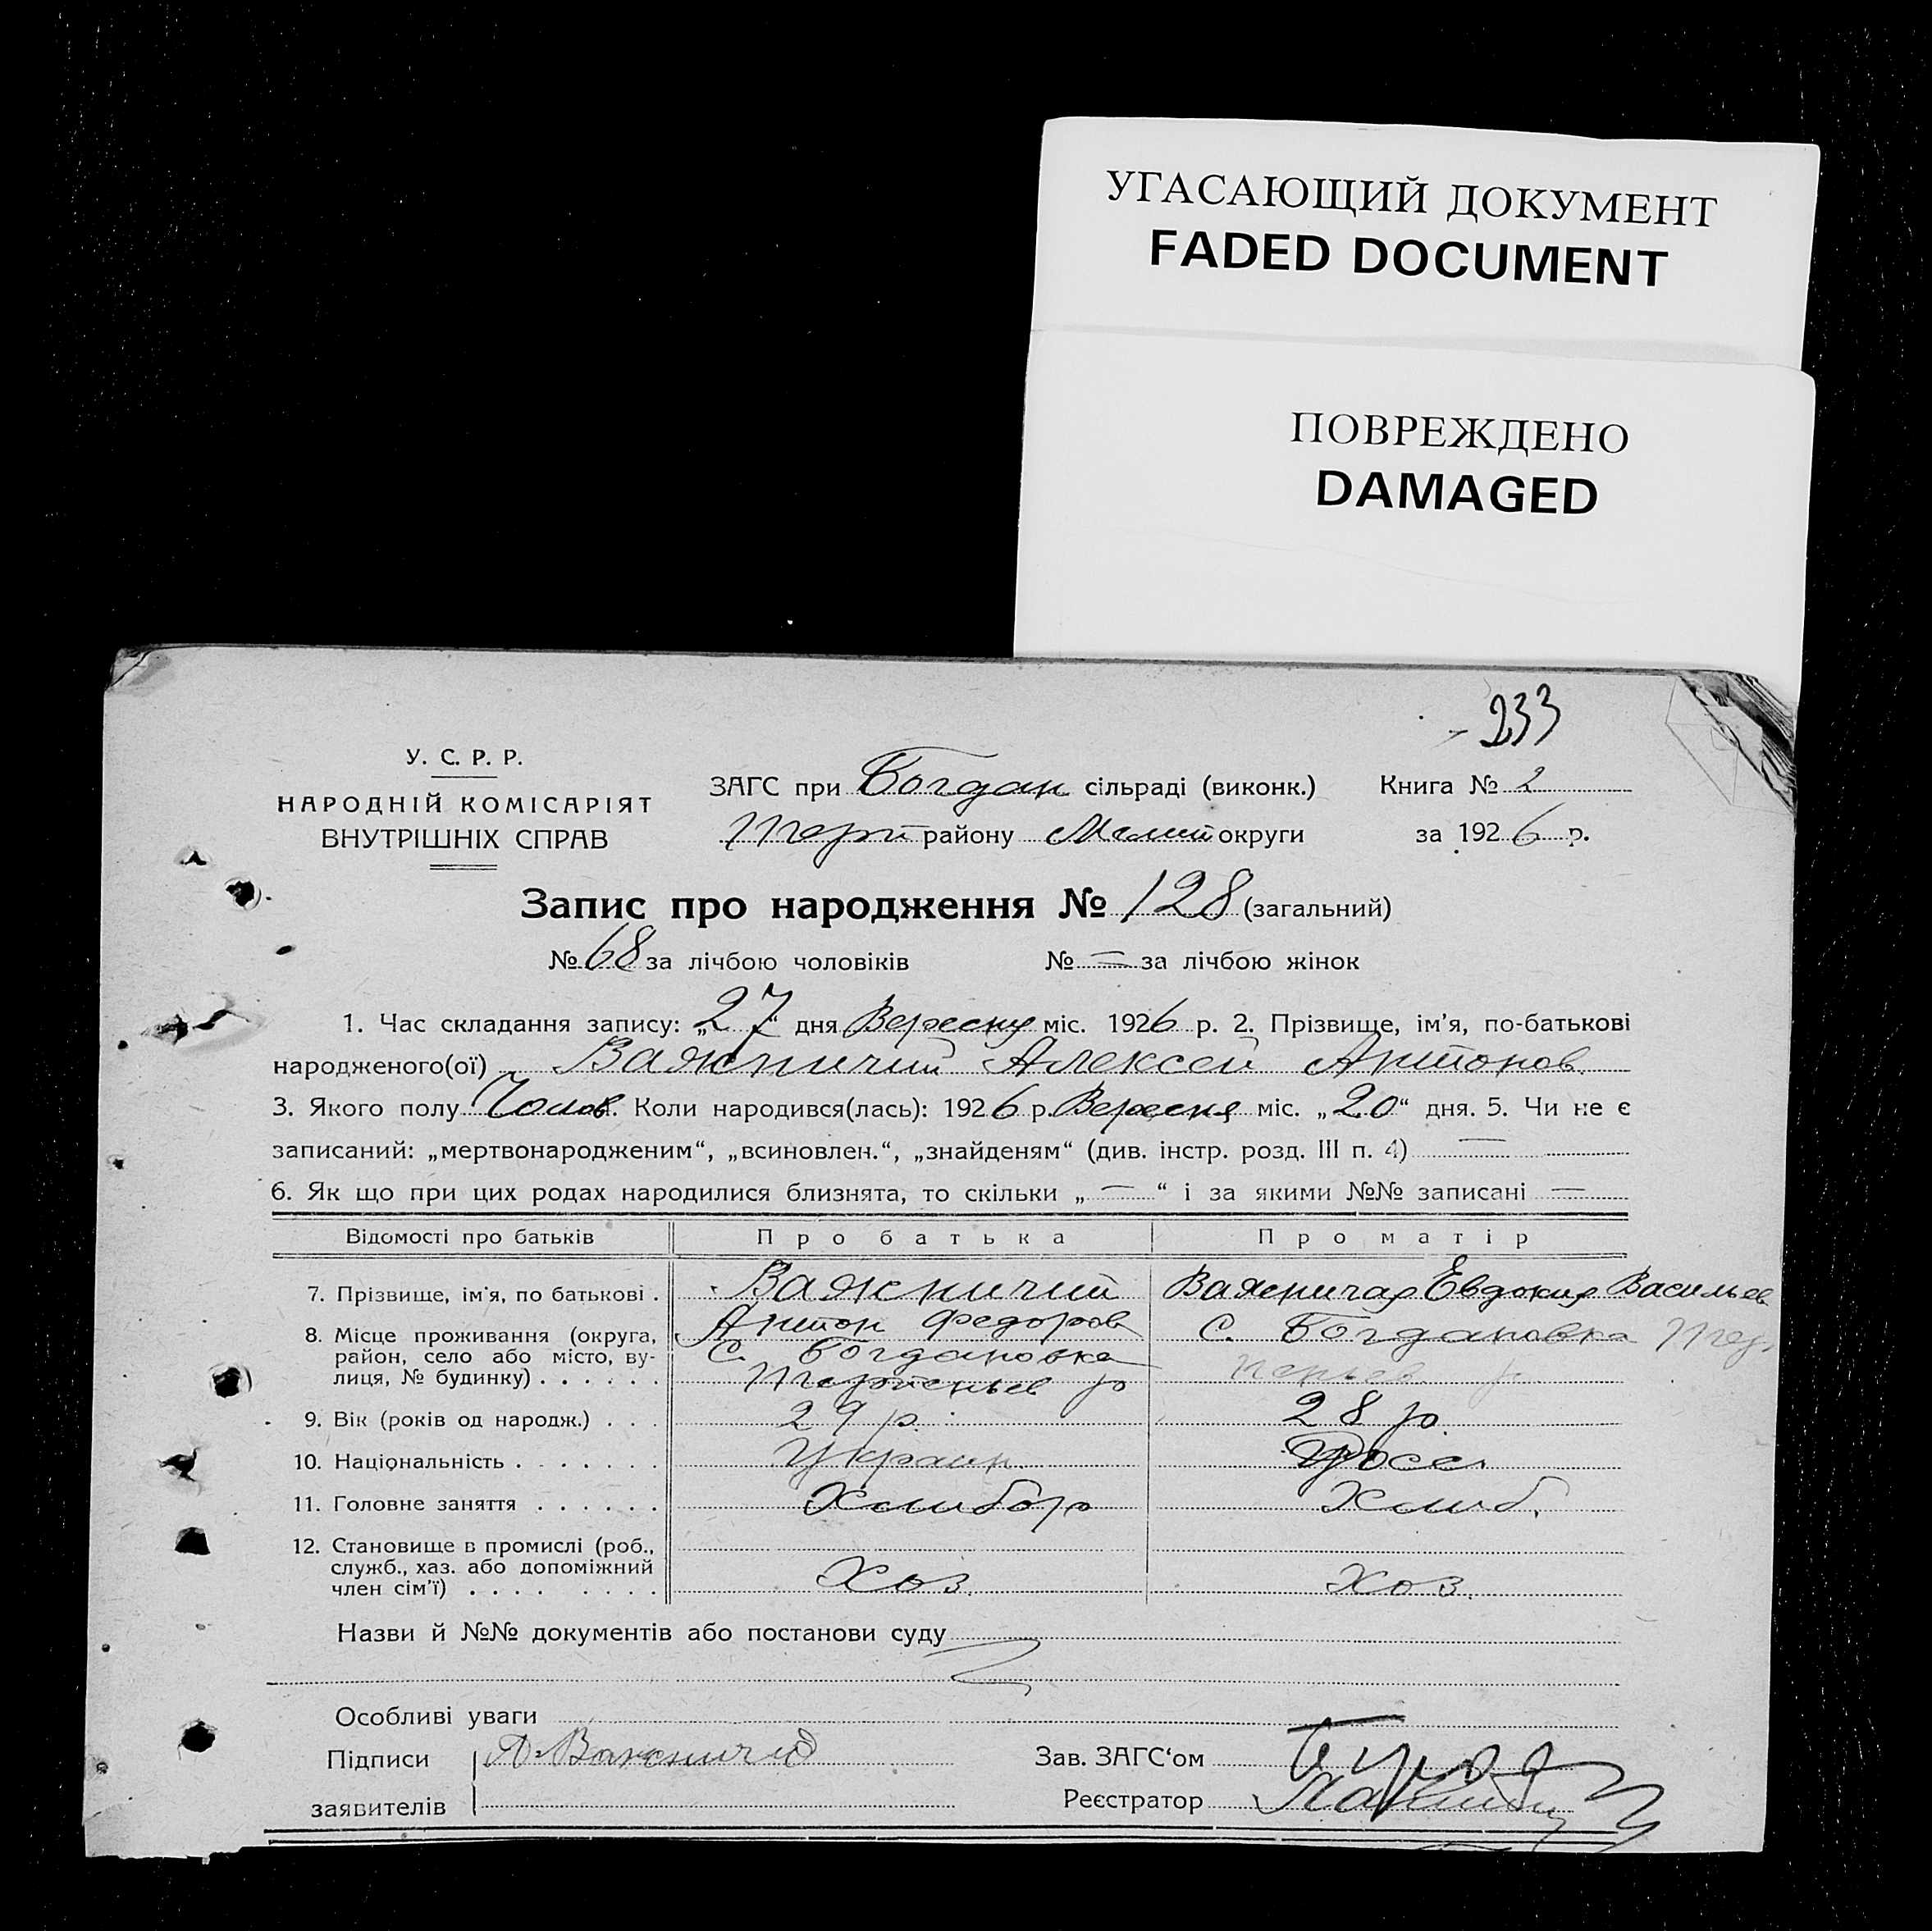 УГАСАЮЩИЙ ДОКУМЕНТ
FADED DOCUMENT
ПОВРЕЖДЕНО
DAMAGED
233
У. С. Р. Р.
НАРОДНІЙ КОМІСАРІЯТ
ВНУТРІШНІХ СПРАВ
ЗАГС при Богдан сільраді (виконк.) Книга № 2
Терп району Меліт округи за 1926 р.
Запис про народження № 128 (загальний)
№ 68 за лічбою чоловіків № — за лічбою жінок
1. Час складання запису: „27“ дня Вересну міс. 1926 р. 2. Прізвище, ім'я, по-батькові
народженого(ої) Важничий Алексей Антонов.
3. Якого полу Чолов. Коли народився(лась): 1926 р. Вересня міс. „20“ дня. 5. Чи не є
записаний: „мертвонародженим“, „всиновлен.“, „знайденям“ (див. інстр. розд. III п. 4) —
6. Як що при цих родах народилися близнята, то скільки „ — “ і за якими №№ записані —
Відомості про батьків Про батька Про матір
7. Прізвище, ім'я, по батькові . Важничий Важничая Евдокия Васильев
Антон Федоров
8. Місце проживання (округа, район, село або місто, вулиця, № будинку) . . . . . . С. Богдановка С. Богдановка Тер
Терпеньев р пеньев р
9. Вік (років од народж.) . . . 29 р. 28 р.
10. Національність . . . . . . . Украин.
11. Головне заняття . . . . . . Хлибор Хлиб.
12. Становище в промислі (роб.,
служб., хаз. або допоміжний
член сім'ї) . . . . . . . . Хоз. Хоз.
Назви й №№ документів або постанови суду
Особливі уваги
Підписи А. Важничий Зав. ЗАГС‘ом
заявителів Реєстратор